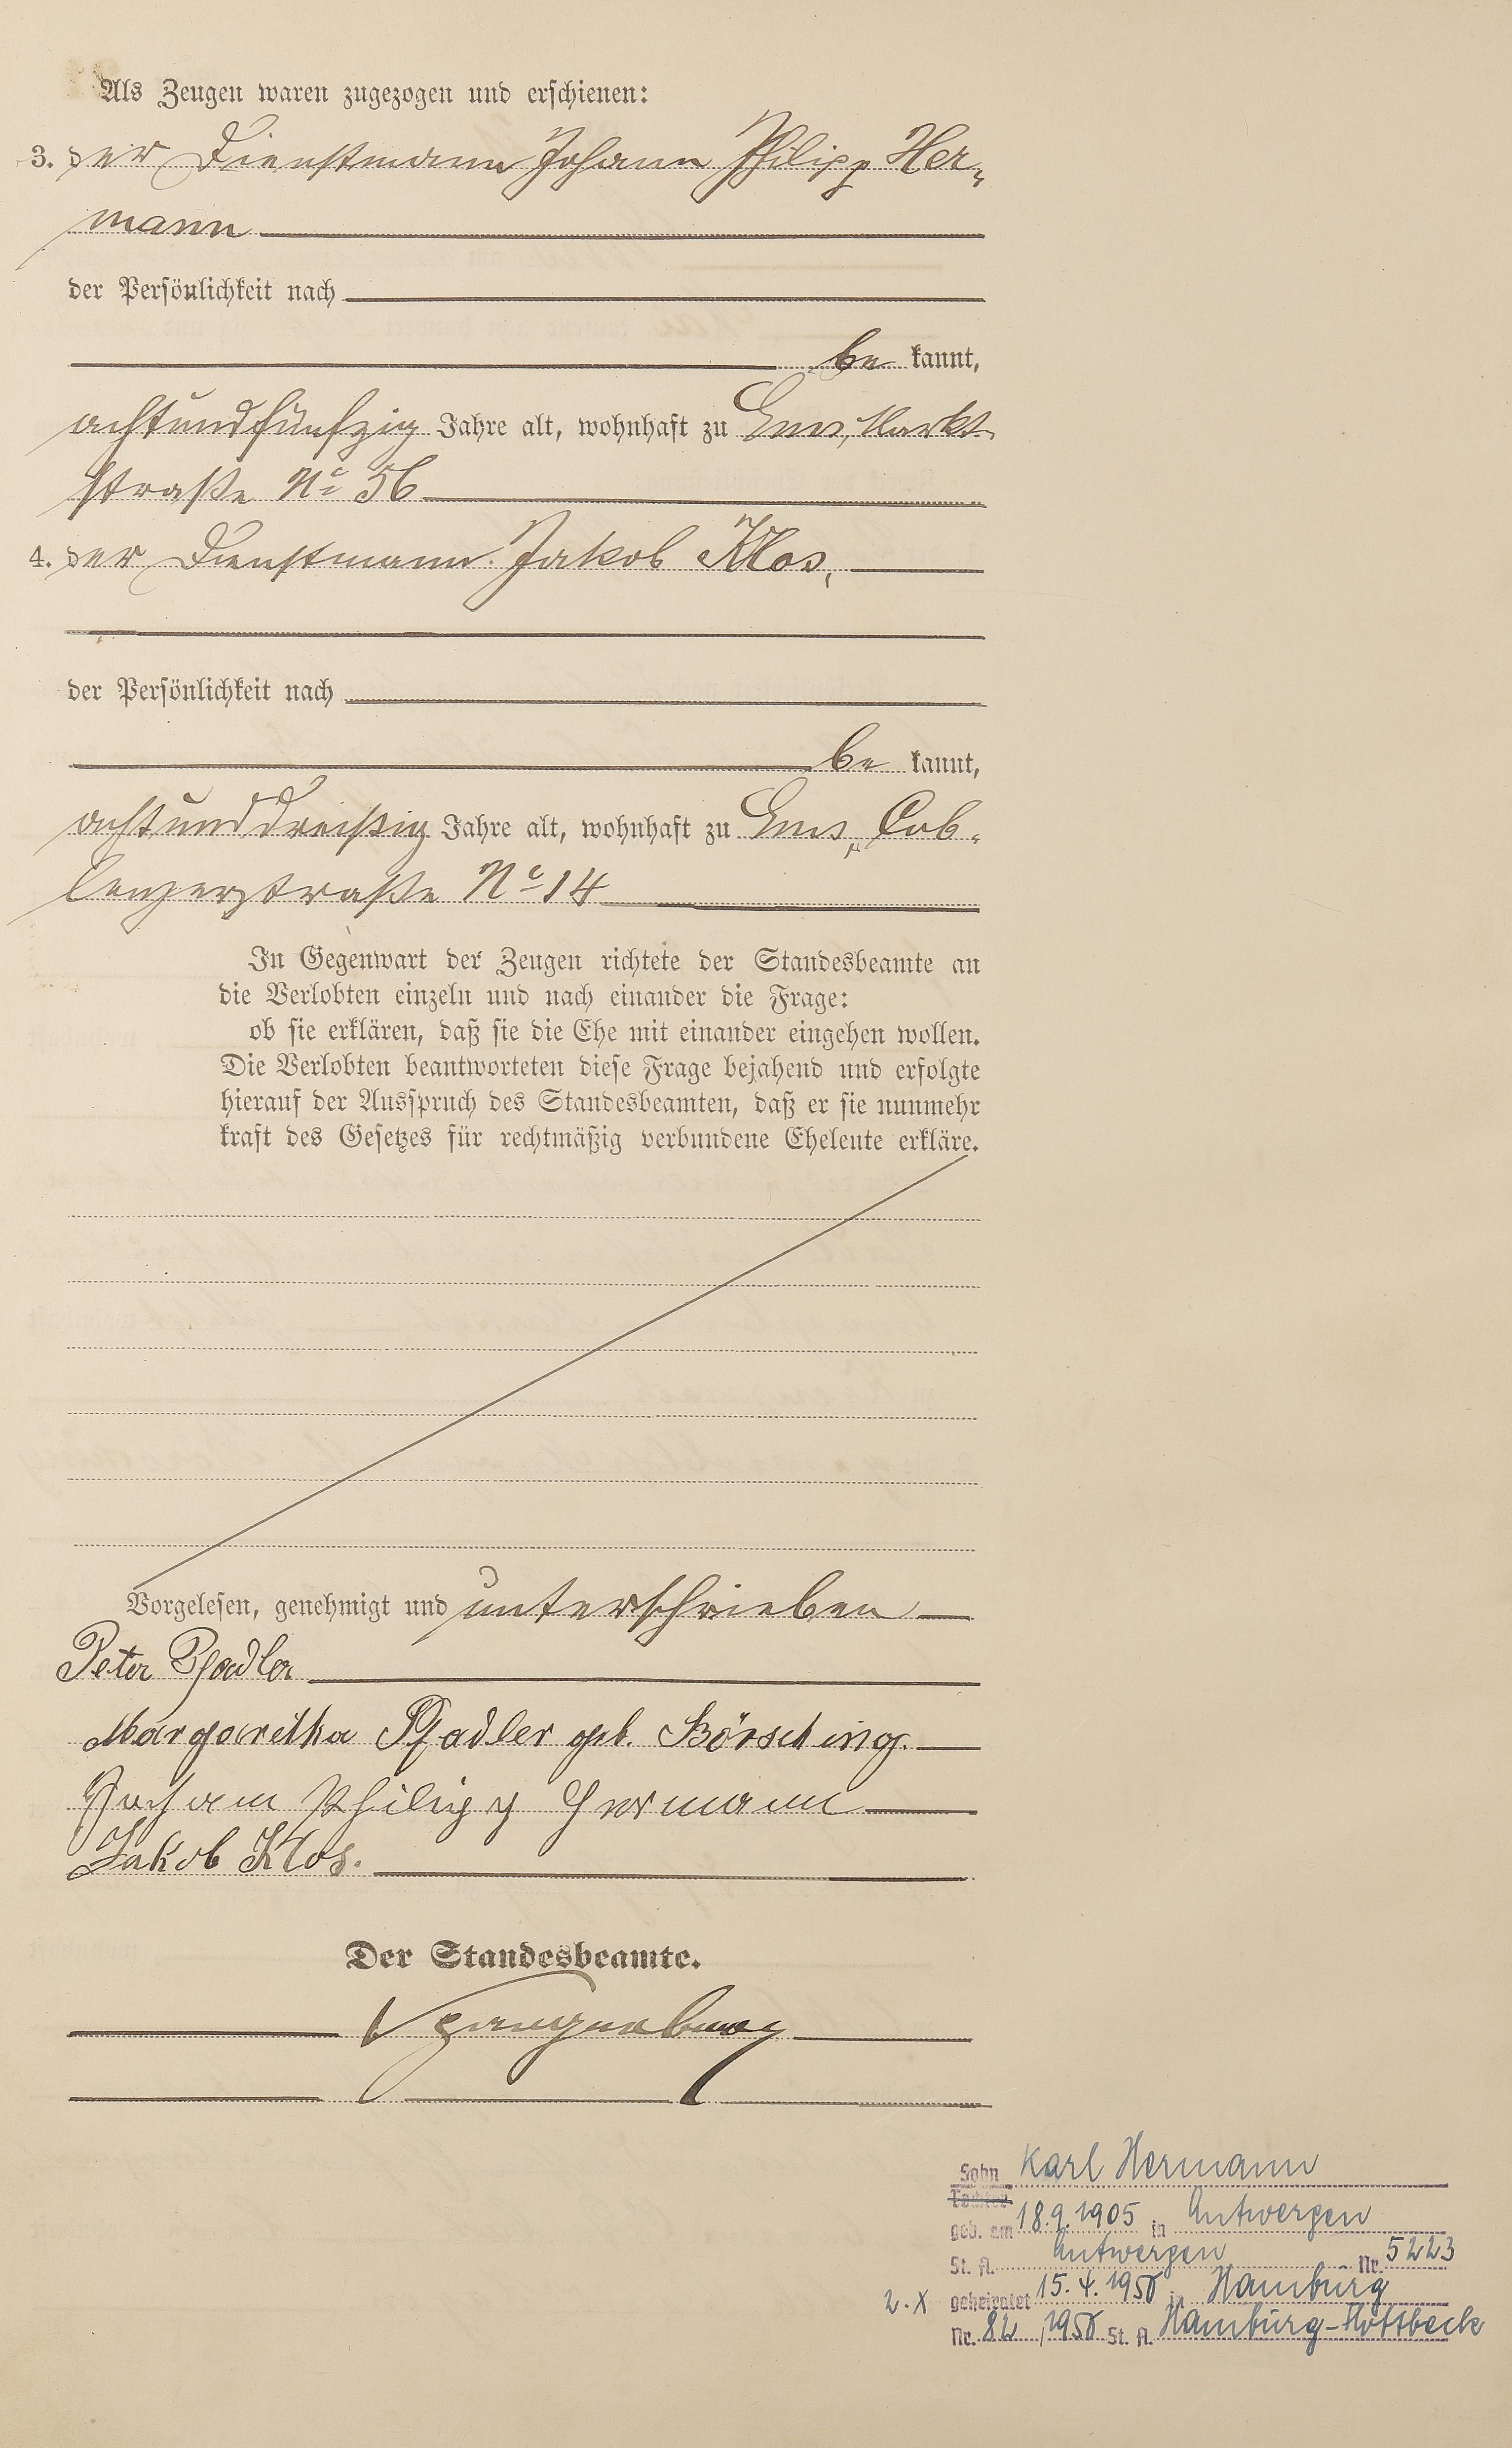 Als Zeugen waren zugezogen und erschienen:
3. der Dienstmann Johann Philipp Her-
mann
der Persönlichkeit nach
be kannt,
achtundfünfzig Jahre alt, wohnhaft zu Ems, Markt-
straße No 56
4. der Dienstmann Jakob Klos,
der Persönlichkeit nach
be kannt,
achtunddreißig Jahre alt, wohnhaft zu Ems, Cob-
lenzerstraße No 14
In Gegenwart der Zeugen richtete der Standesbeamte an
die Verlobten einzeln und nach einander die Frage:
ob sie erklären, daß sie die Ehe mit einander eingehen wollen.
Die Verlobten beantworteten diese Frage bejahend und erfolgte
hierauf der Ausspruch des Standesbeamten, daß er sie nunmehr
kraft des Gesetzes für rechtmäßig verbundene Eheleute erkläre.
Vorgelesen, genehmigt und unterschrieben
Peter Pfadler
Margaretha Pfadler geb. Börsching.
Johann Philipp Hermann
Jakob Klos.
Der Standesbeamte.
Spangenberg
Sohn Karl Hermann
Tochter
geb. am 18.9.1905 in Antwerpen
St. A. Antwerpen Nr. 5223
2. X geheiratet 15.4.1950 in Hamburg
Nr. 82 /1950 St. A. Hamburg-